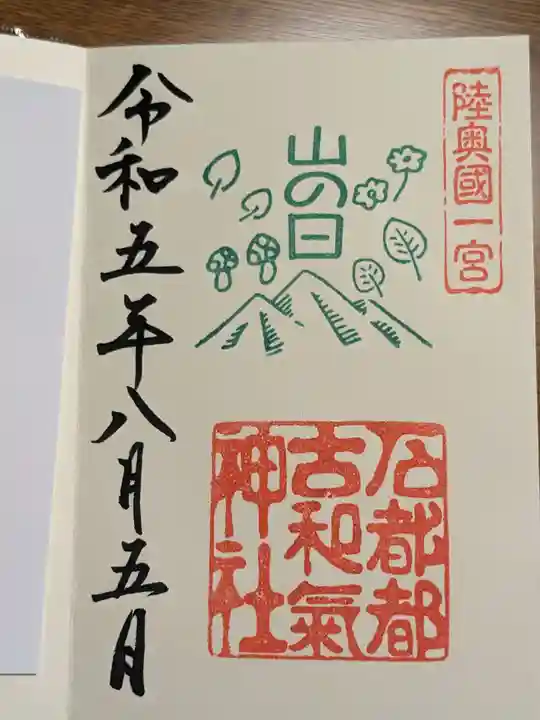 陸奥國一宮
山の日
石都都
古和氣
神社
令和五年八月五日